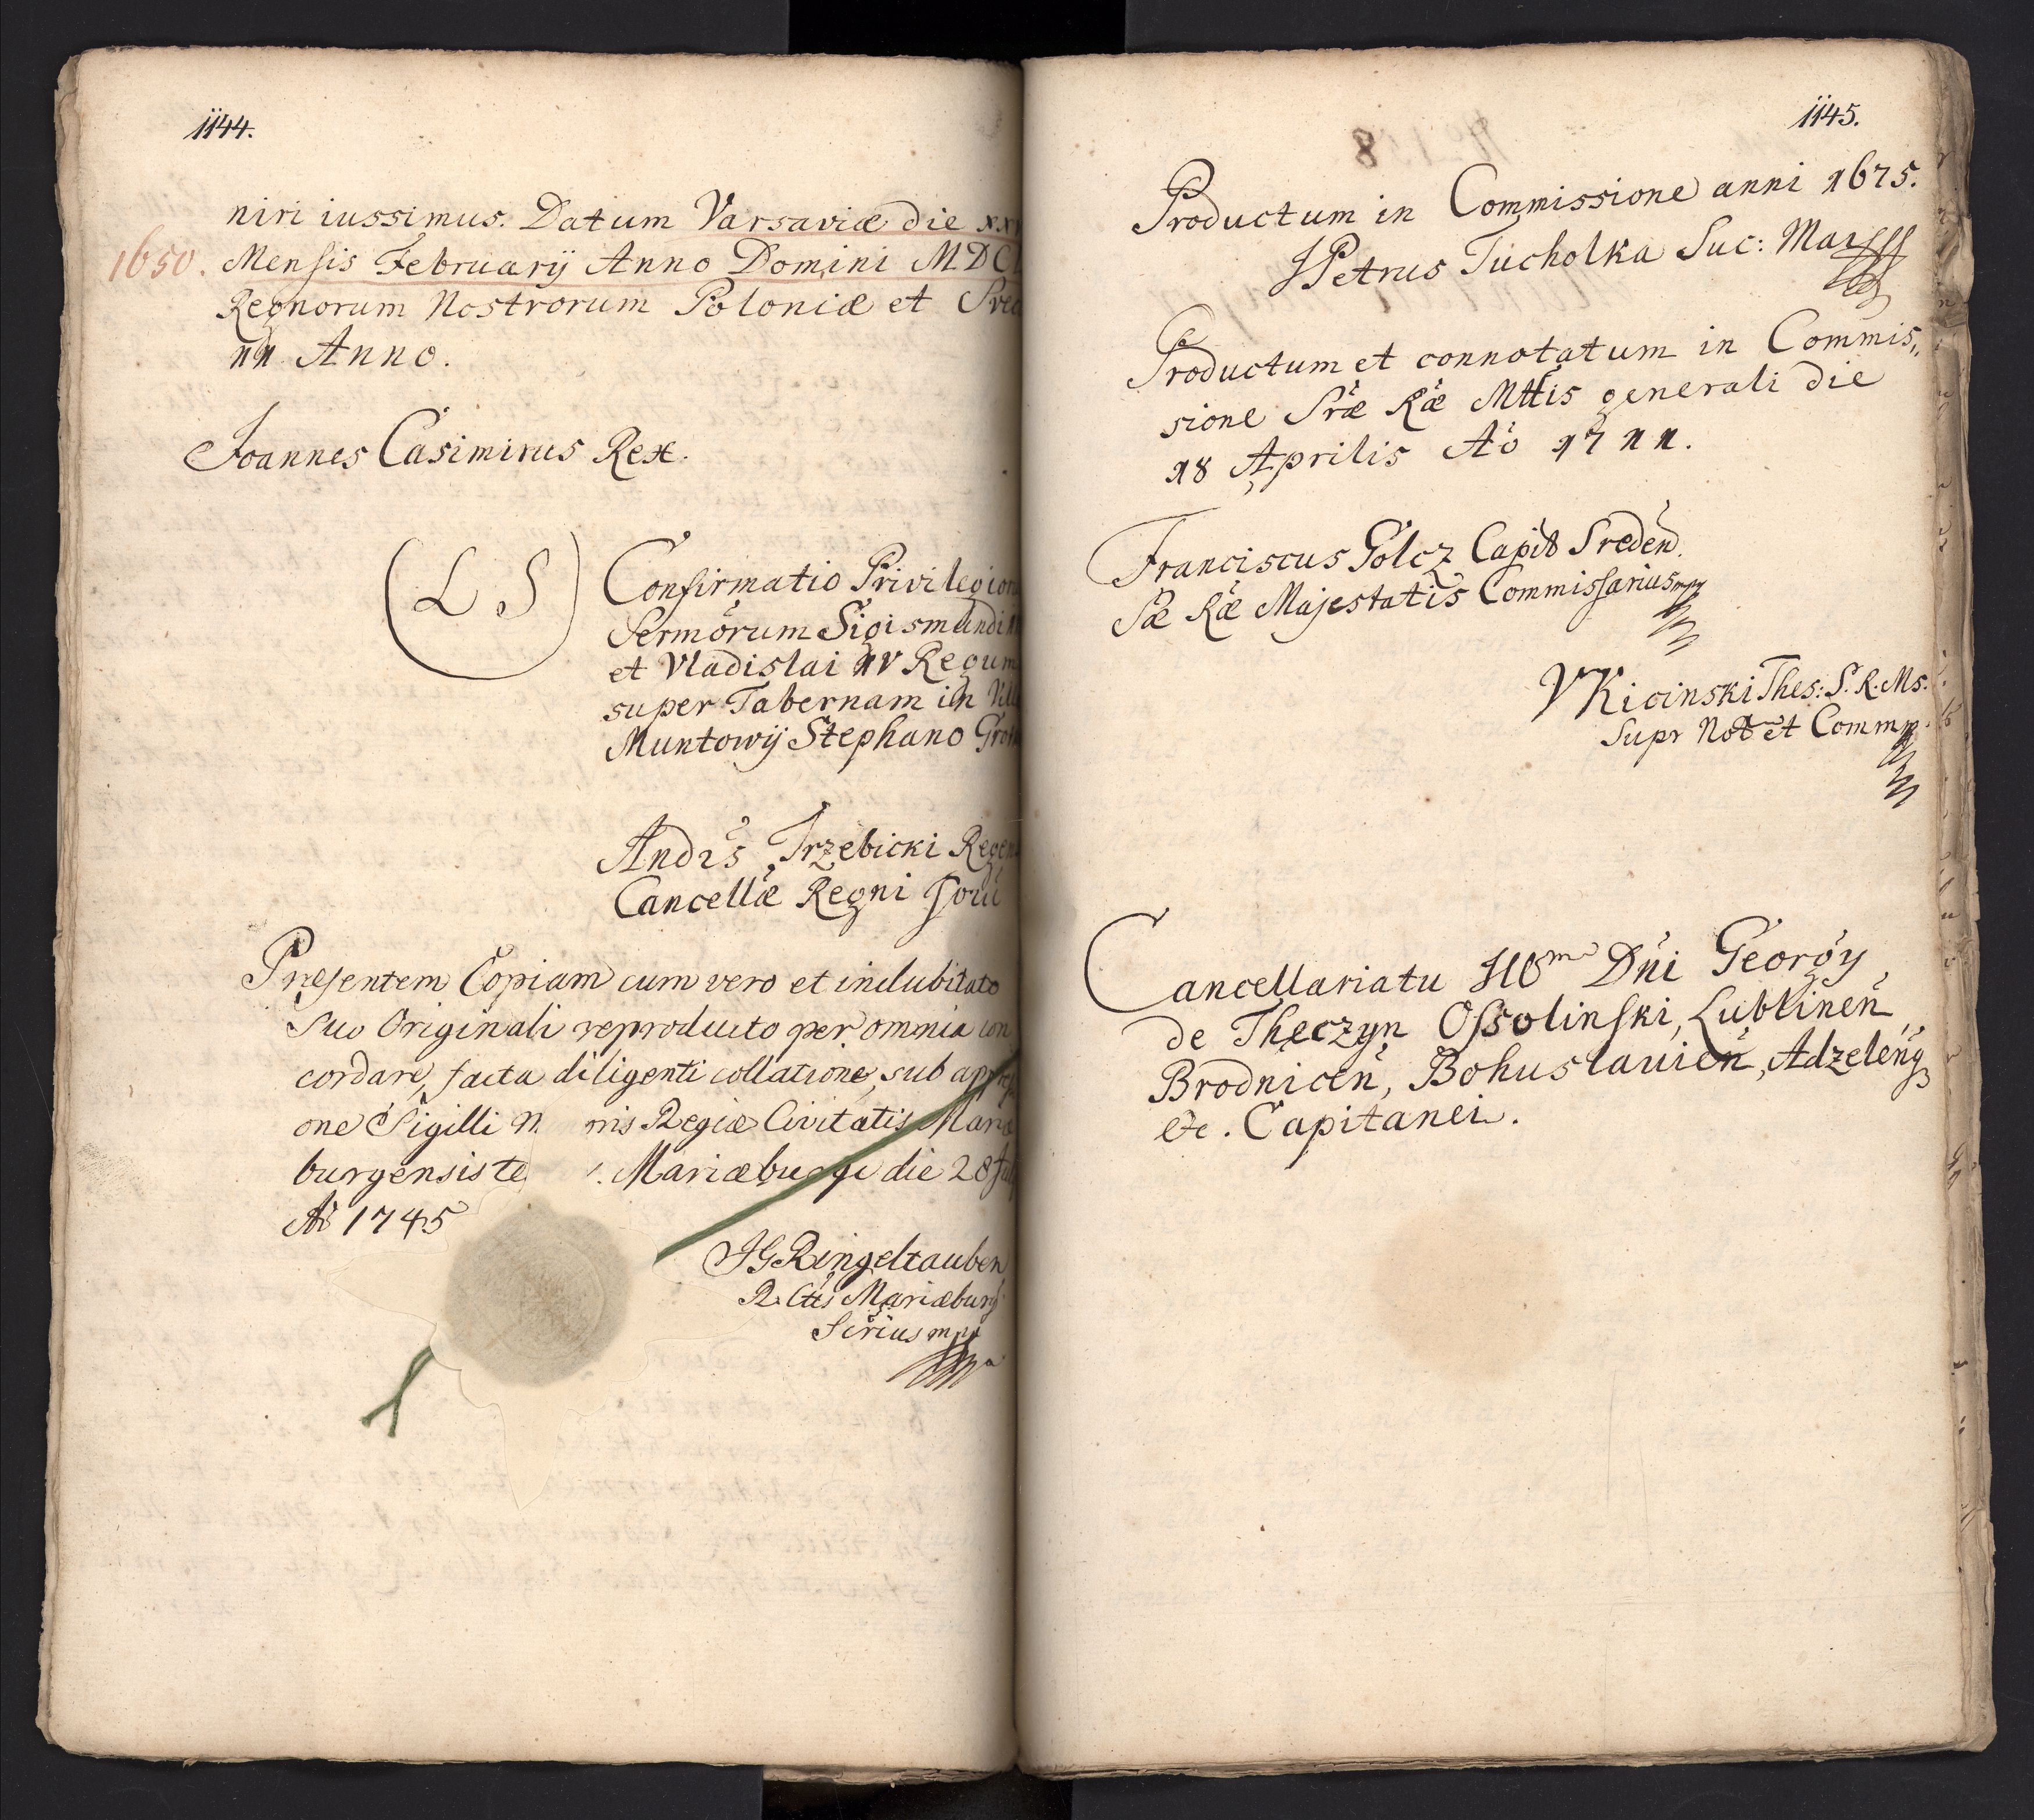 1144.
niri iussimus. Datum Varsaviæ die xx
1650. Mensis February Anno Domini MDCL
Regnorum Nostrorum Poloniæ et Svec
Anno.
Joannes Casimirus Rex.
(L S)
Confirmatio Privilegior
Sermörum Sigismundi
et Vladislai IV Regum
super Tabernam in Vil
Muntowÿ Stephano Grot
Andꝛs Trzebicki Regen
Cancellæ Regni
Presentem Copiam cum vero et indubitato
Suo Originali reproducto per omnia con
cordare, facta diligenti collatione, sub appre
one Sigilli nis Regiæ Civitatis Mariæ
burgensis te Mariæburgi die 28 Jul
Aō 1745
JG Ringeltauben
R. Cttis Mariæburg
Scrius mpp
1145.
Productum in Commissione anni 1675.
Petrus Tucholka Suc: Mar
Productum et connotatum in Commis,,
sione Sræ Ræ Mttis generali die
18 Aprilis Aō 1711.
Franciscus Golcz Capit Sreden.
Sæ Ræ Majestatis Commissarius mpp
V Kicinski Thes: S. R. Ms.
Supr Not et Comm mp.
Cancellariatu Illm Dni Georgy
de Theczyn Ossolinski, Lublinen
Brodnicen, Bohuslauien, Adzelenq3
etc. Capitanei.